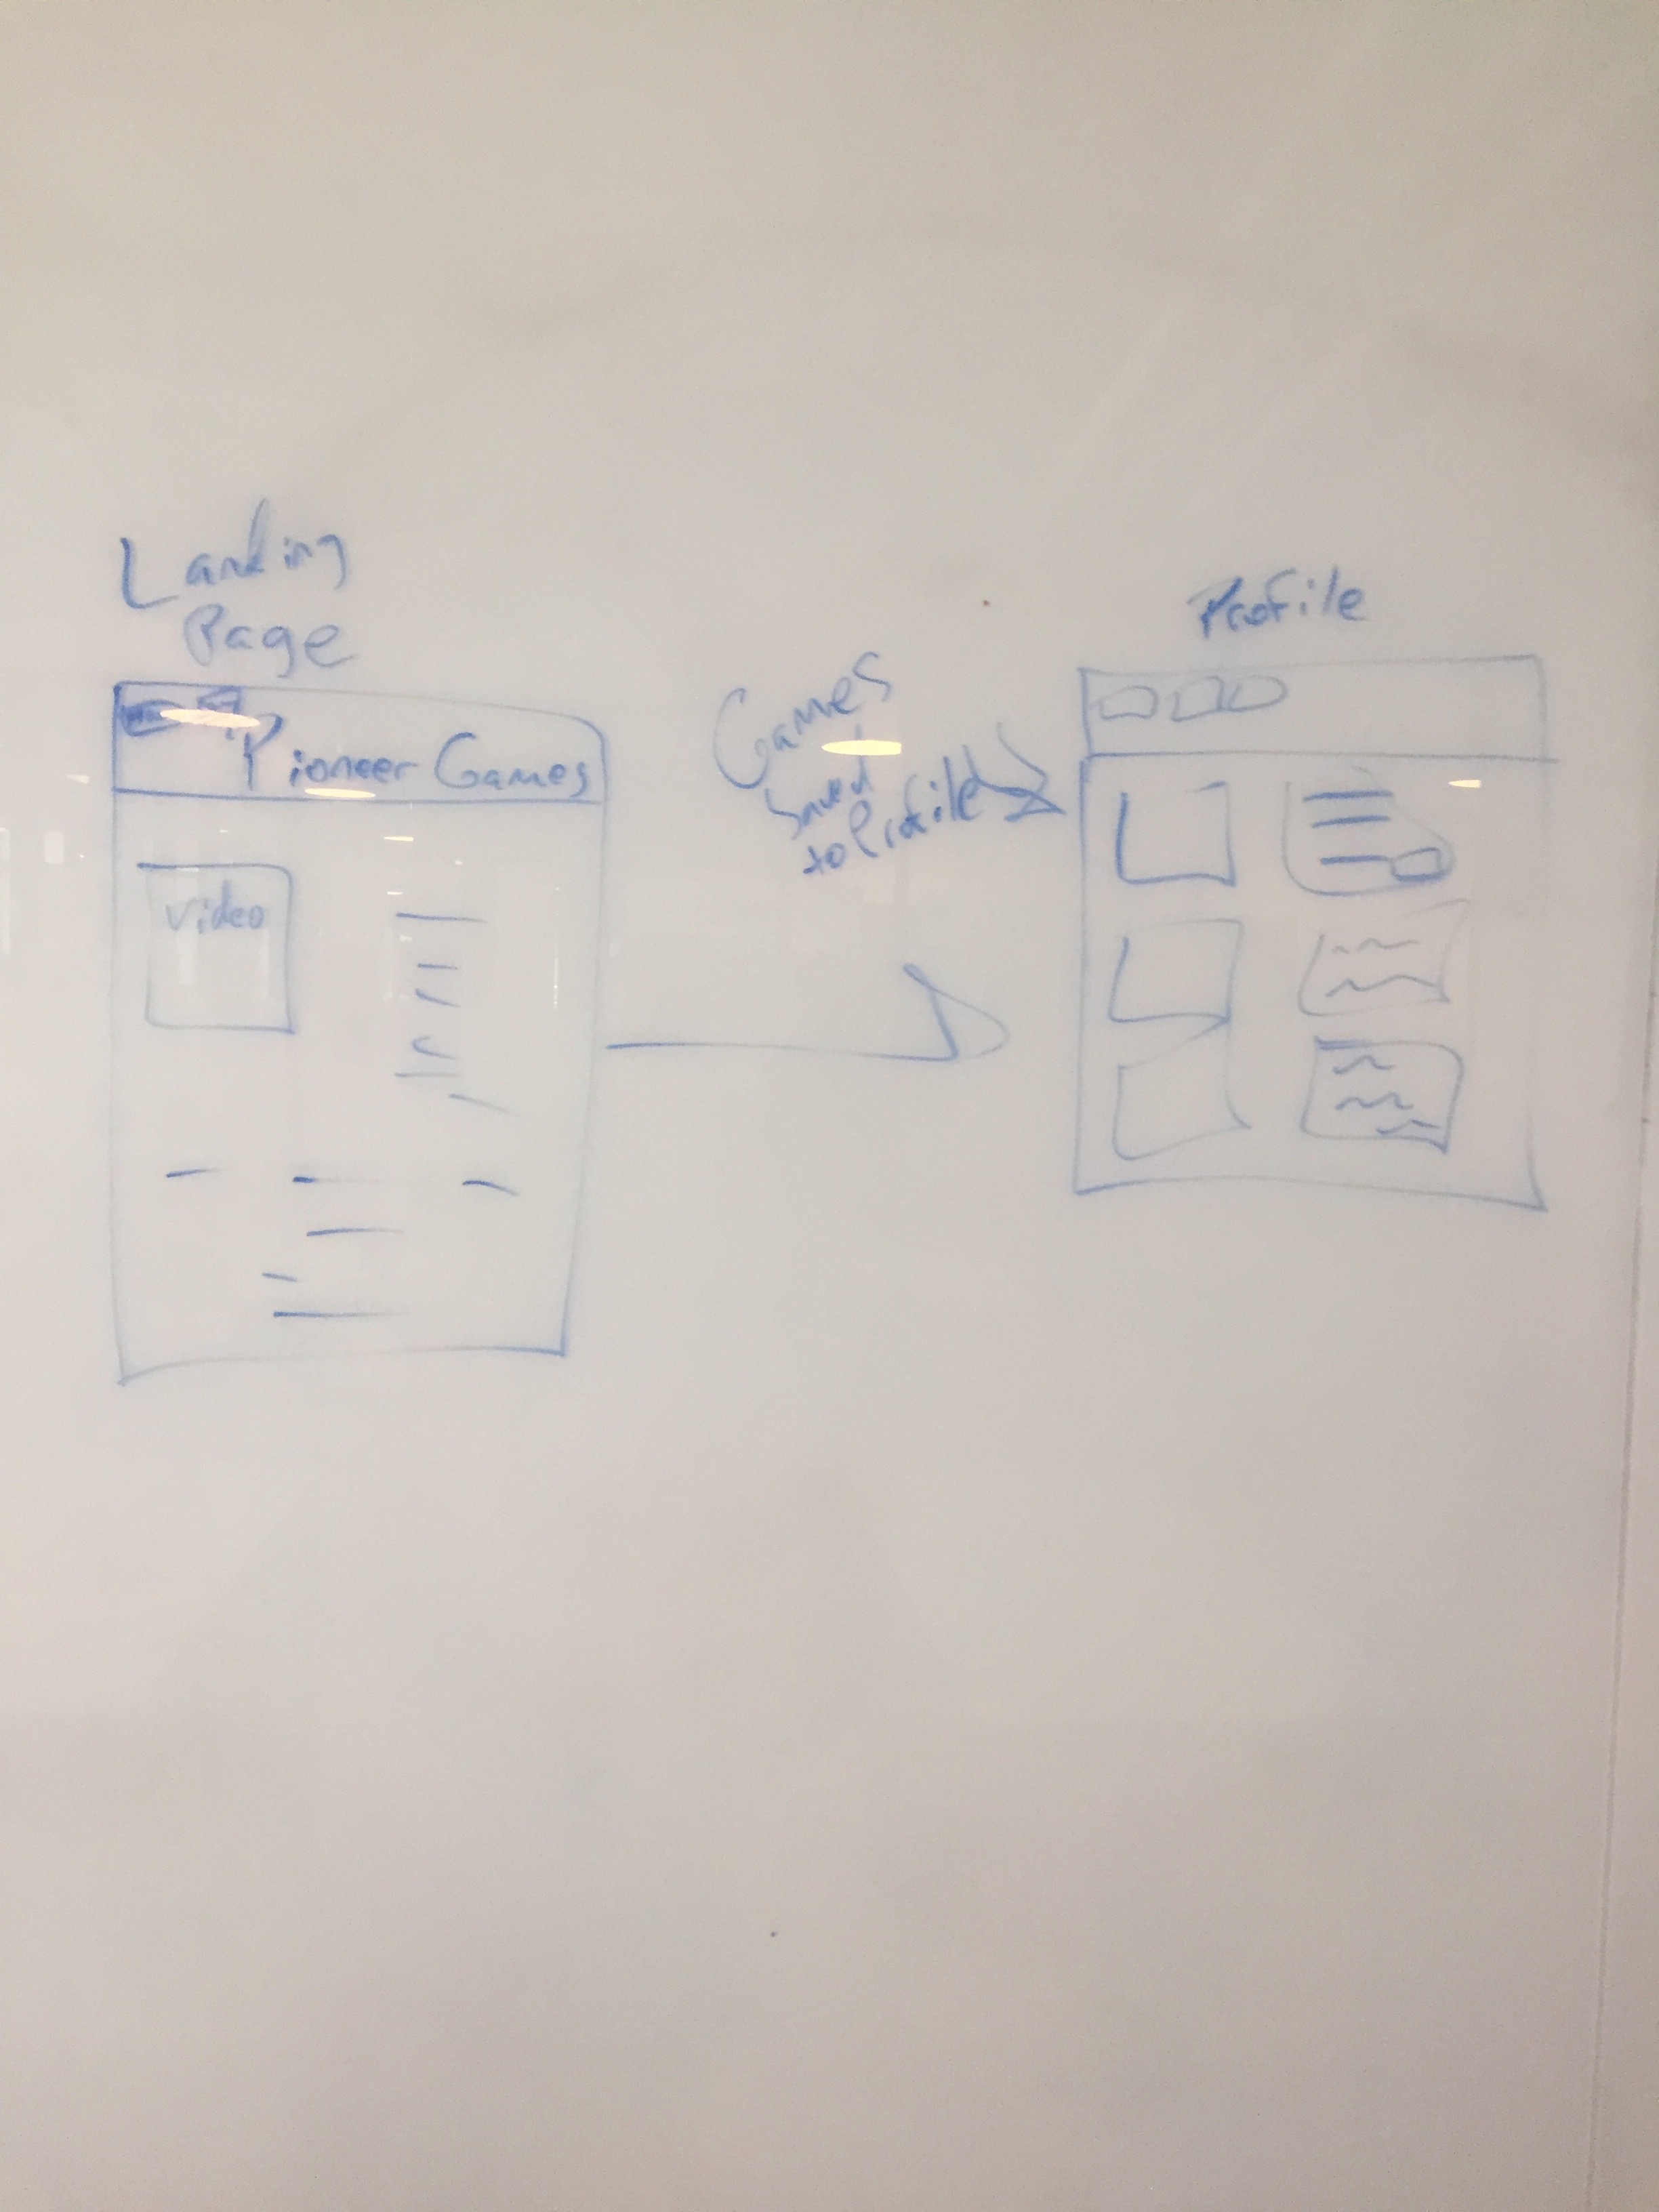 Landing
Page
Pioneer Games
Video
Games
Saved
to Profile
Profile